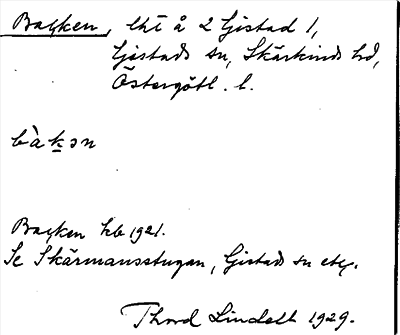 Backen, lht å 2 Gistad 1,
Gistads sn, Skärkinds hd,
Östergötl. l.
bàkən
Backen hb 1921.
Se Skärmansstugan, Gistads sn etc.
Thord Lindell 1929.